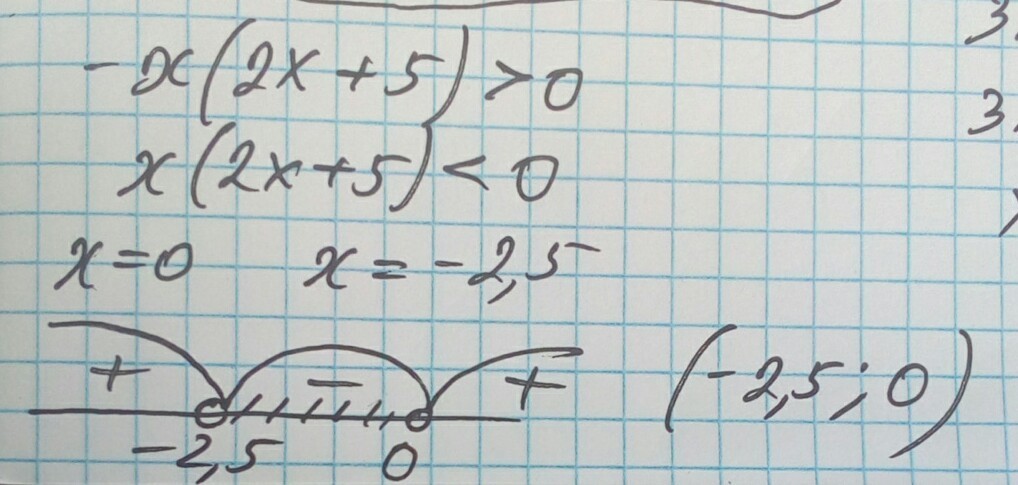 -x(2x+5)>0
x(2x+5)<0
x=0 x=-2,5
+ - +
-2,5 0 (-2,5;0)
3.
3.